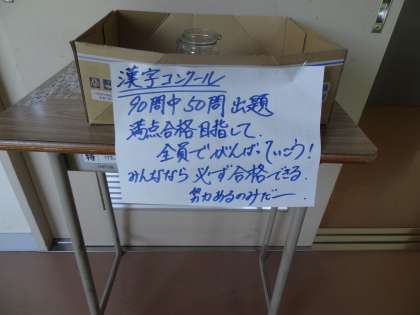 漢字コンクール
90問中50問出題
満点合格目指して
全員でがんばっていこう!
みんななら必ず合格できる.
努力あるのみだー